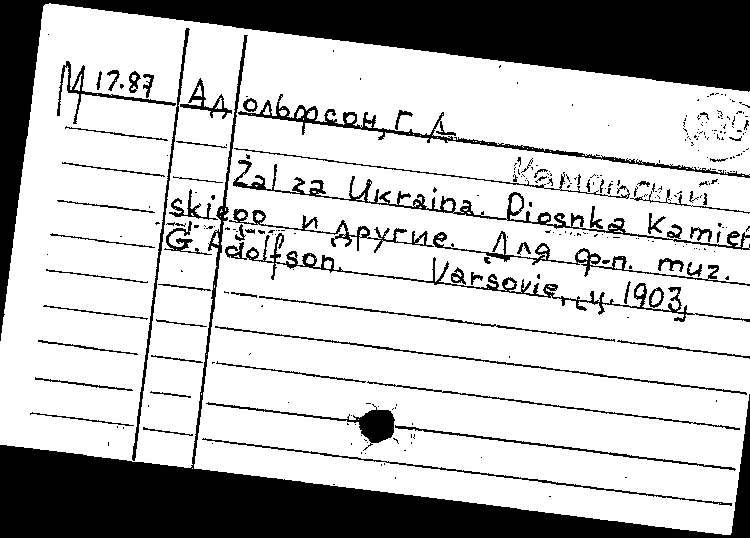 М 17.87 Адольфсон, Г. Д
239
Камальский
Żal za Ukraina. Piosnka Kamień
skiego и другие. Для ф-п. muz.
G. Adolfson. Varsovie, ц. 1903,